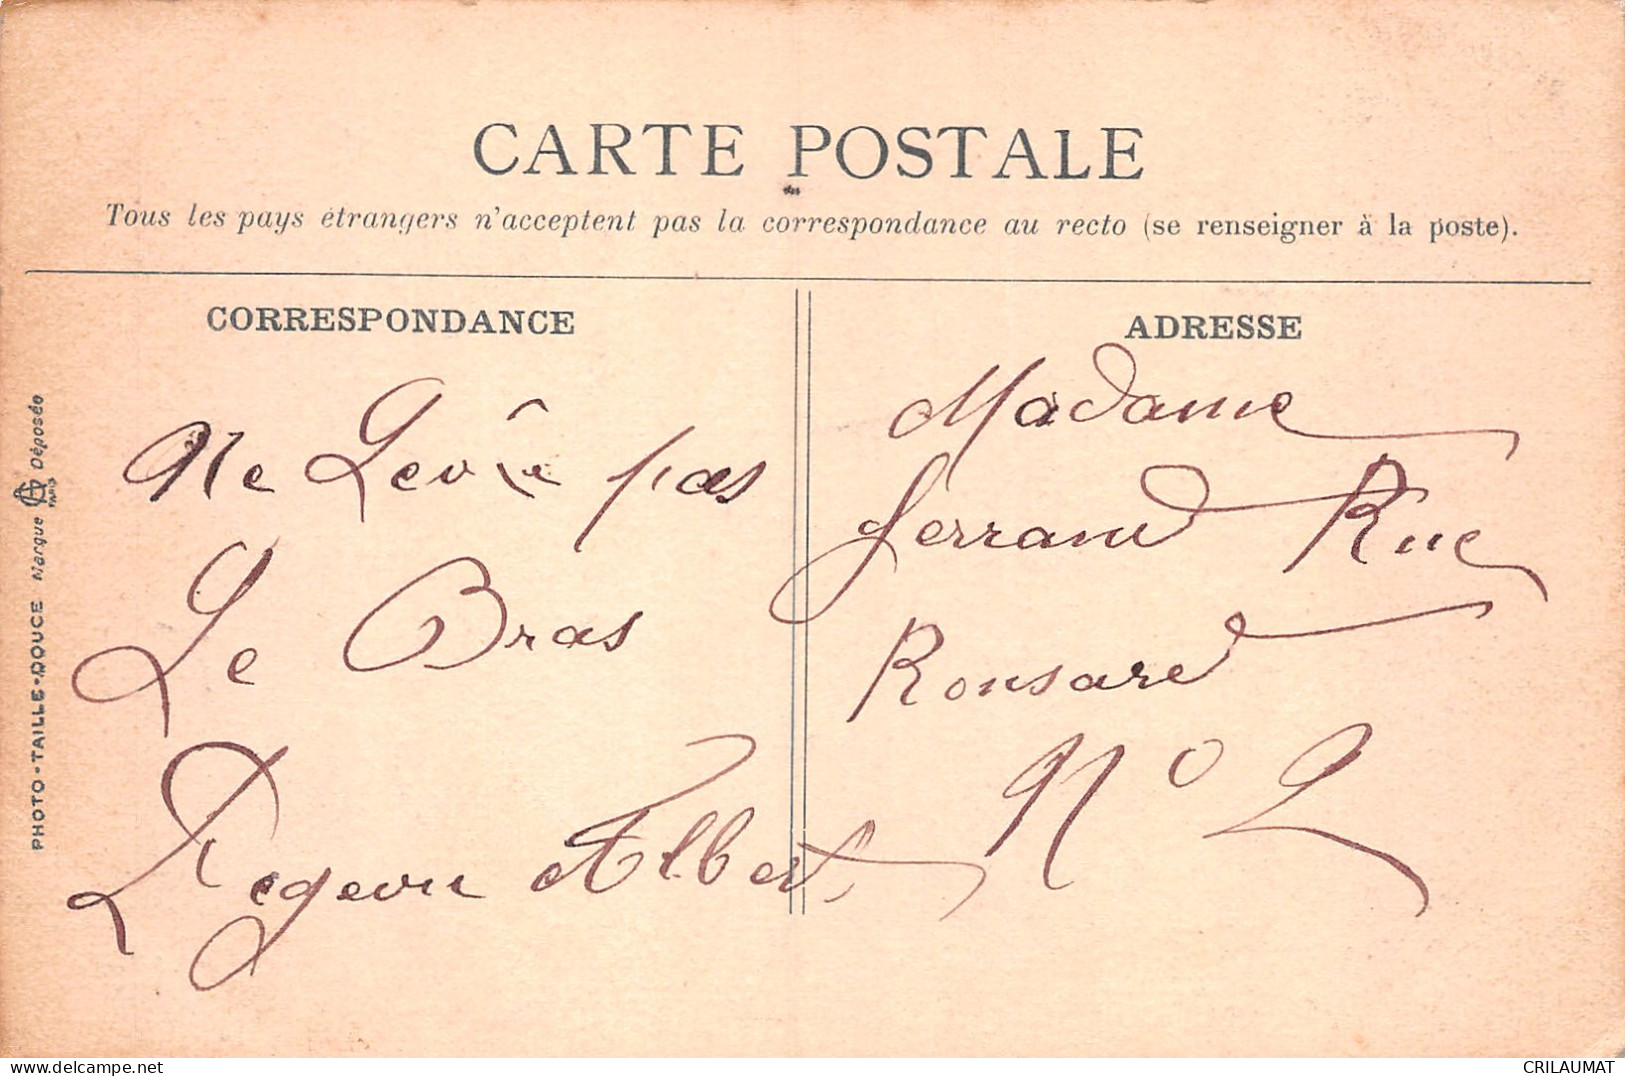 CARTE POSTALE
Tous les pays étrangers n'acceptent pas la correspondance au recto (se renseigner à la poste).
CORRESPONDANCE
Ne Levé pas
Le Bras
et Albert
ADRESSE
Madame
Ferrand Rue
Ronsard
No 2
PHOTO-TAILLE-DOUCE Marque PARIS Déposée
CRILAUMAT